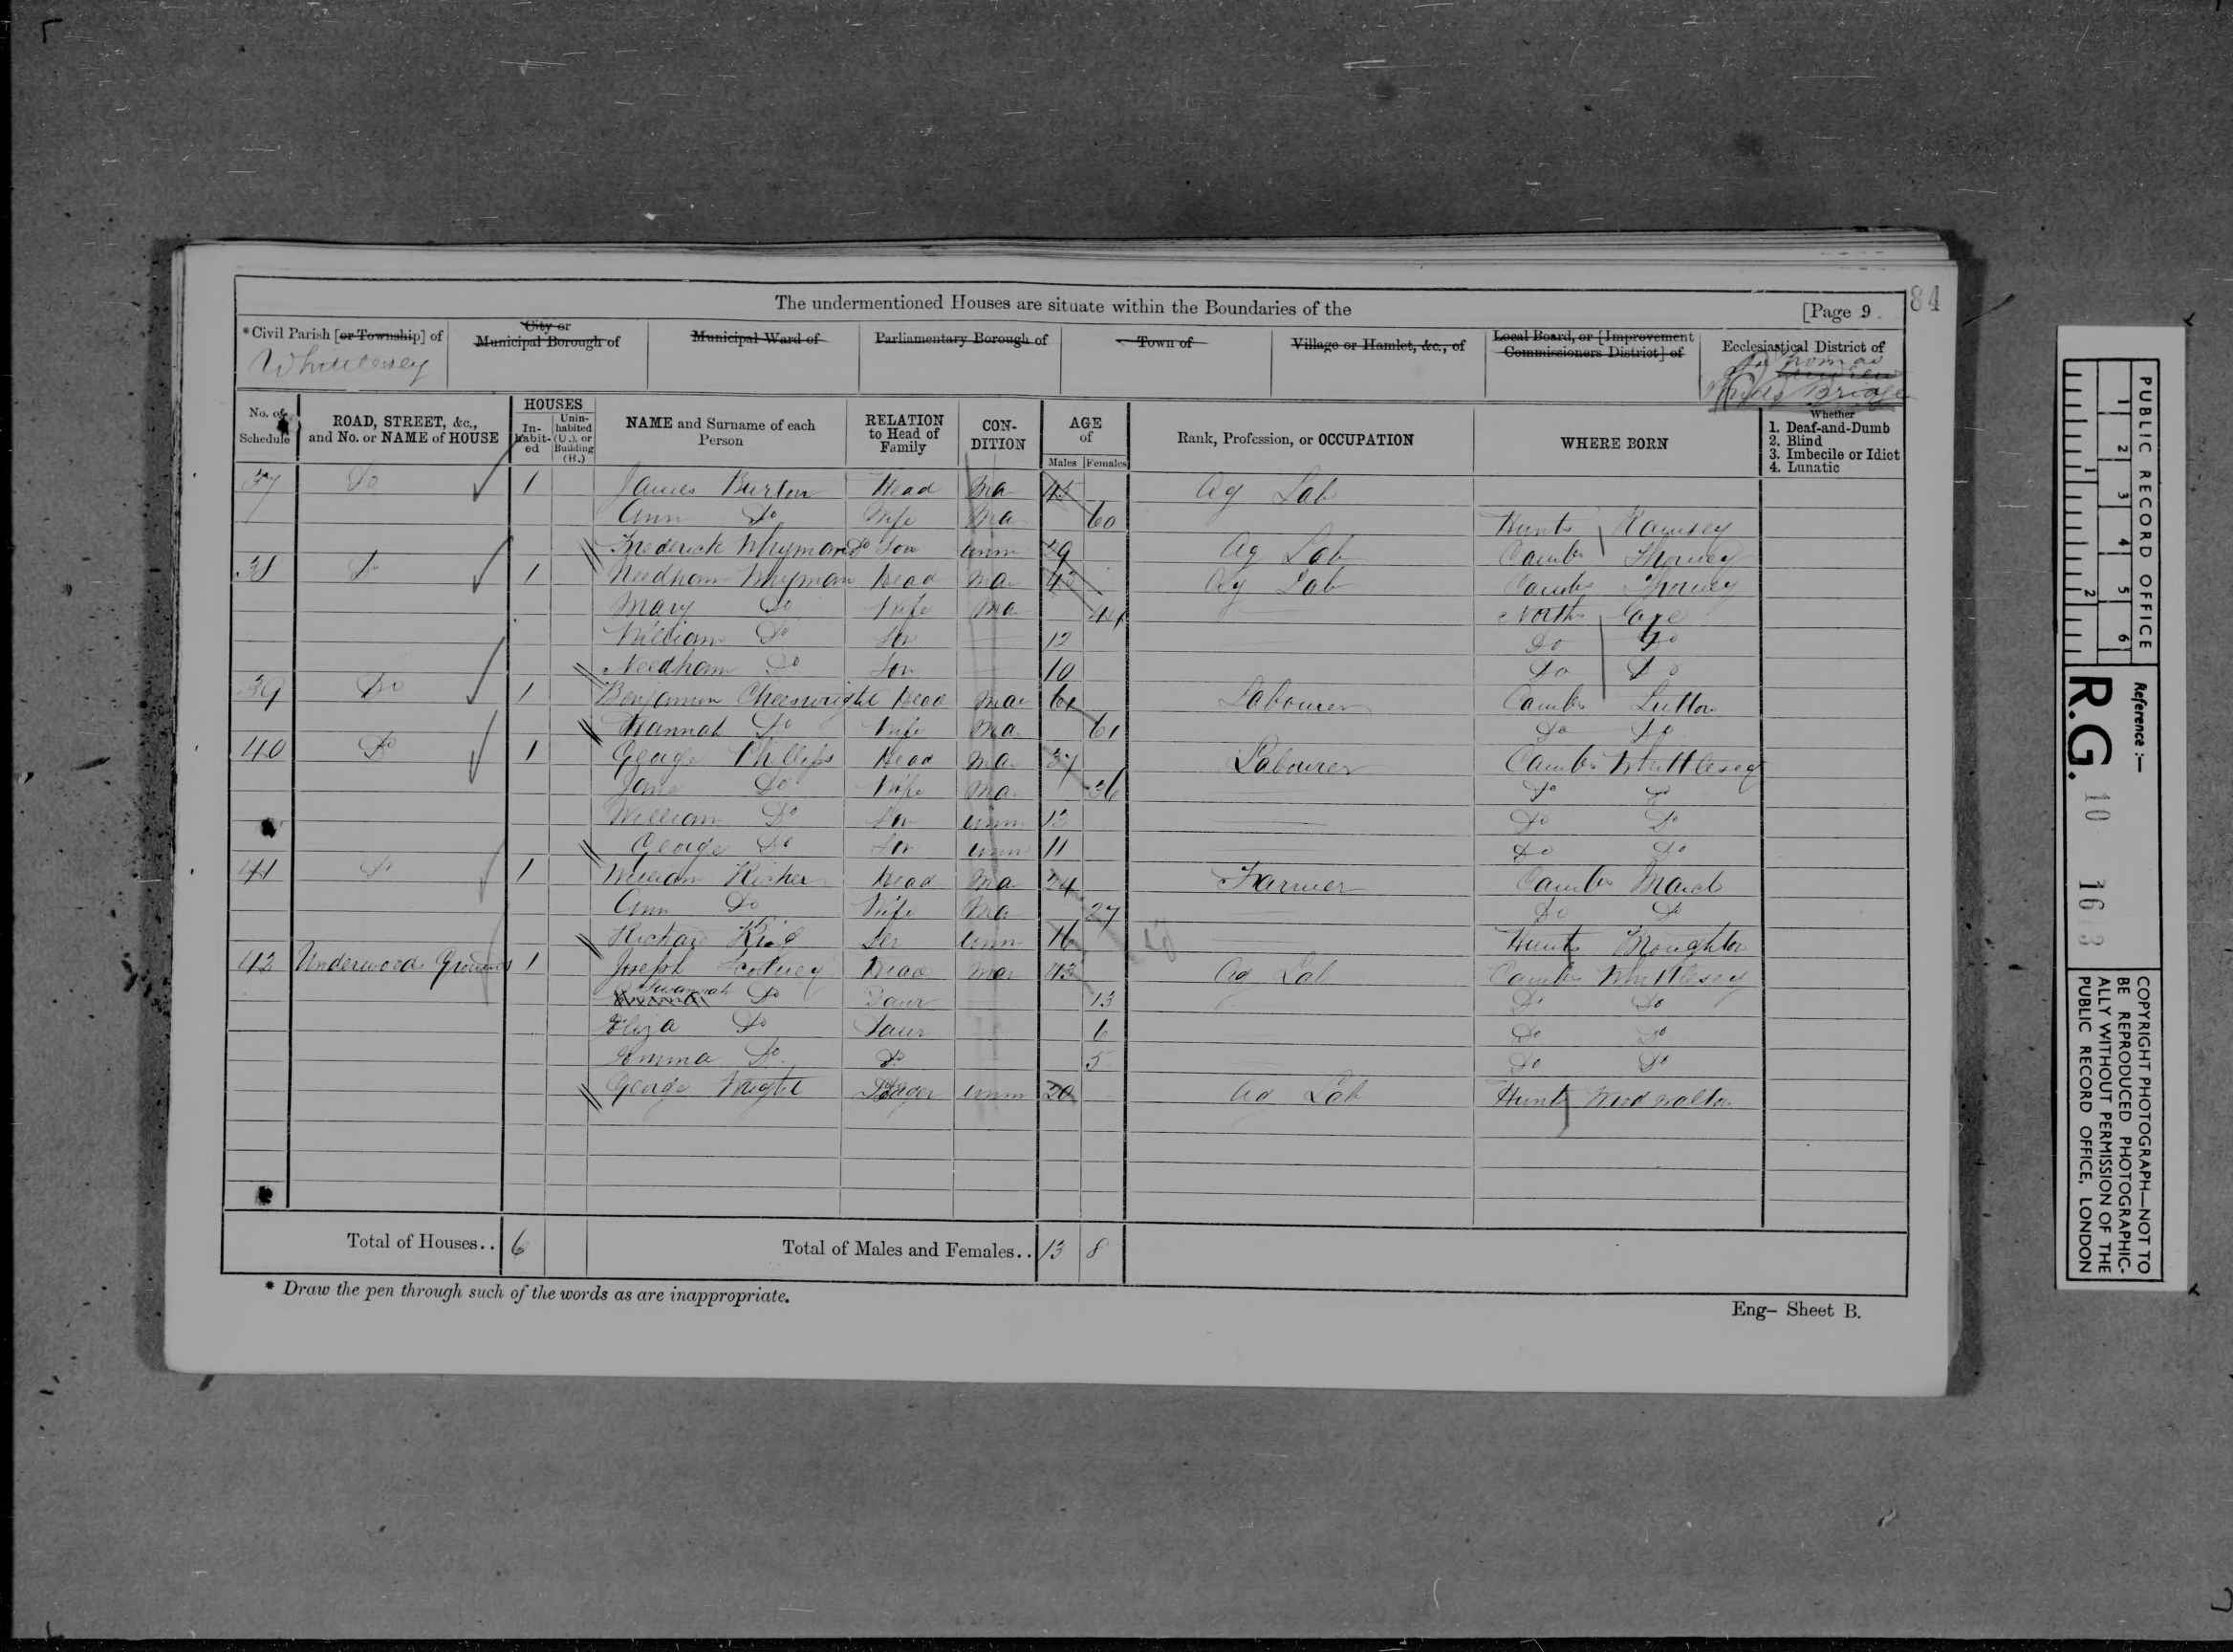 84
The undermentioned Houses are situate within the Boundaries of the [Page 9.
*Civil Parish [or Township] of
City or Municipal Borough of
Municipal Ward of
Parliamentary Borough of
Town of
Village or Hamlet, &c., of
Local Board, or [Improvement Commissioners District] of
Ecclesiastical District of
Whittlesey
St Thomas
Bridge
No. of Schedule
ROAD, STREET, &c., and No. or NAME of HOUSE
HOUSES
In-habit-ed
Unin-habited (U.), or Building (B.)
NAME and Surname of each Person
RELATION to Head of Family
CON-DITION
AGE of
Males Females
Rank, Profession, or OCCUPATION
WHERE BORN
Whether
1. Deaf-and-Dumb
2. Blind
3. Imbecile or Idiot
4. Lunatic
37 Do 1 James Burton Head Ma 45 Ag Lab
Ann Do Wife Ma 60 Hunts Ramsey
Frederick Whyman Do Son Unm 29 Ag Lab Cambs Thorney
38 Do 1 Needham Whyman Head Ma Ag Lab Cambs Thorney
Mary Do Wife Ma 44 North
William Do Son 12 Do Do
Needham Do Son 10 Do Do
39 Do 1 Benjamin Cheeswright Head Mar 61 Labourer Cambs Sutton
Hannah Do Wife Ma 61 Do Do
40 Do 1 George Phillips Head Ma 37 Labourer Cambs Whittlesey
Jane Do Wife Ma 36 Do Do
William Do Son Unm 13 Do Do
George Do Son Unm 11 Do Do
41 Do 1 William Richer Head Ma 24 Farmer Cambs March
Ann Do Wife Ma 27 Do Do
Richard Ser Unm 16 Hunts
42 Underwoods Grounds 1 Joseph Scotney Head Mar 43 Ag Lab Cambs Whittlesey
Susannah Do Daur 13 Do Do
Eliza Do Daur 6 Do Do
Emma Do Do 5 Do Do
George Wright Lodger Unm 20 Ag Lab Hunts Woodwalton
Total of Houses.. 6 Total of Males and Females.. 13 8
* Draw the pen through such of the words as are inappropriate.
Eng- Sheet B.
PUBLIC RECORD OFFICE
1 2 3 4 5 6
1 2
Reference :—
R.G. 10 163
COPYRIGHT PHOTOGRAPH—NOT TO
BE REPRODUCED PHOTOGRAPHIC-
ALLY WITHOUT PERMISSION OF THE
PUBLIC RECORD OFFICE, LONDON